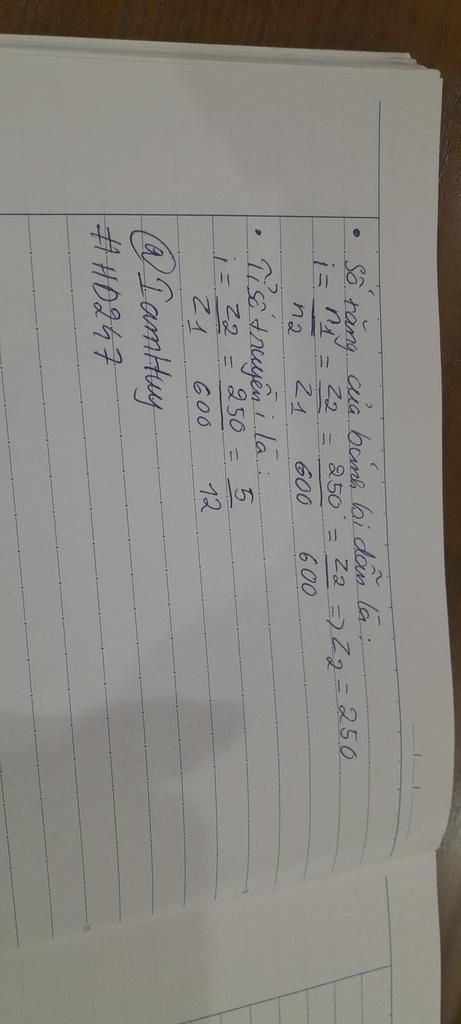 • Số răng của bánh bị dẫn là:
i = n1/n2 = Z2/Z1 = 250/600 = Z2/600 => Z2 = 250
• Tỉ số truyền i là:
i = Z2/Z1 = 250/600 = 5/12
@IamHuy
#HD247